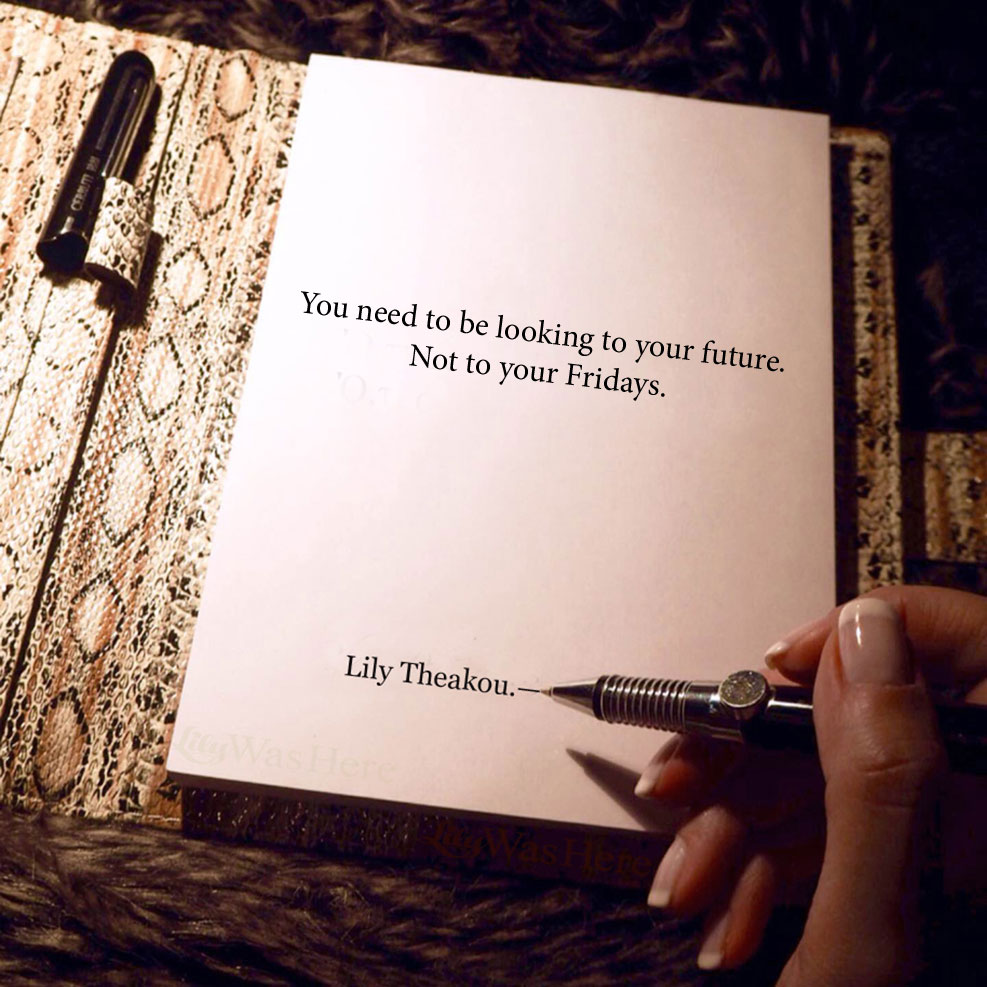 CERRUTI 1881
You need to be looking to your future.
Not to your Fridays.
Lily Theakou.—
LilyWasHere
LilyWasHere